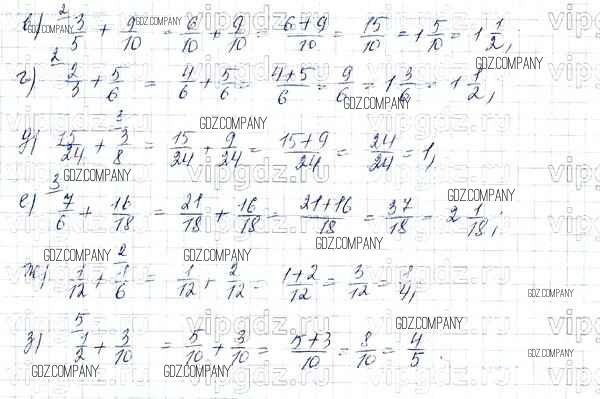 в) 3/5 ² + 9/10 = 6/10 + 9/10 = (6+9)/10 = 15/10 = 1 5/10 = 1 1/2;
г) 2/3 ² + 5/6 = 4/6 + 5/6 = (4+5)/6 = 9/6 = 1 3/6 = 1 1/2;
д) 15/24 + 3/8 ³ = 15/24 + 9/24 = (15+9)/24 = 24/24 = 1,
е) 7/6 ³ + 16/18 = 21/18 + 16/18 = (21+16)/18 = 37/18 = 2 1/18;
ж) 1/12 + 1/6 ² = 1/12 + 2/12 = (1+2)/12 = 3/12 = 1/4;
з) 1/2 ⁵ + 3/10 = 5/10 + 3/10 = (5+3)/10 = 8/10 = 4/5.
GDZ.COMPANY
vipgdz.ru